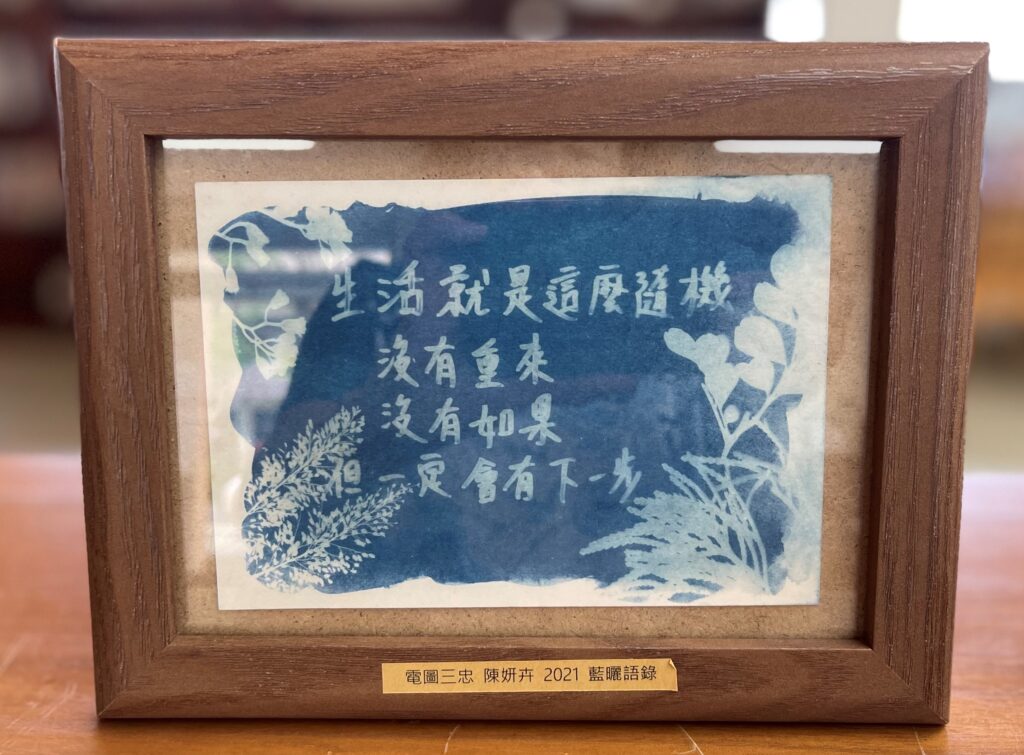 生活就是這麼隨機
沒有重來
沒有如果
但一定會有下一步
電圖三忠 陳妍卉 2021 藍曬語錄